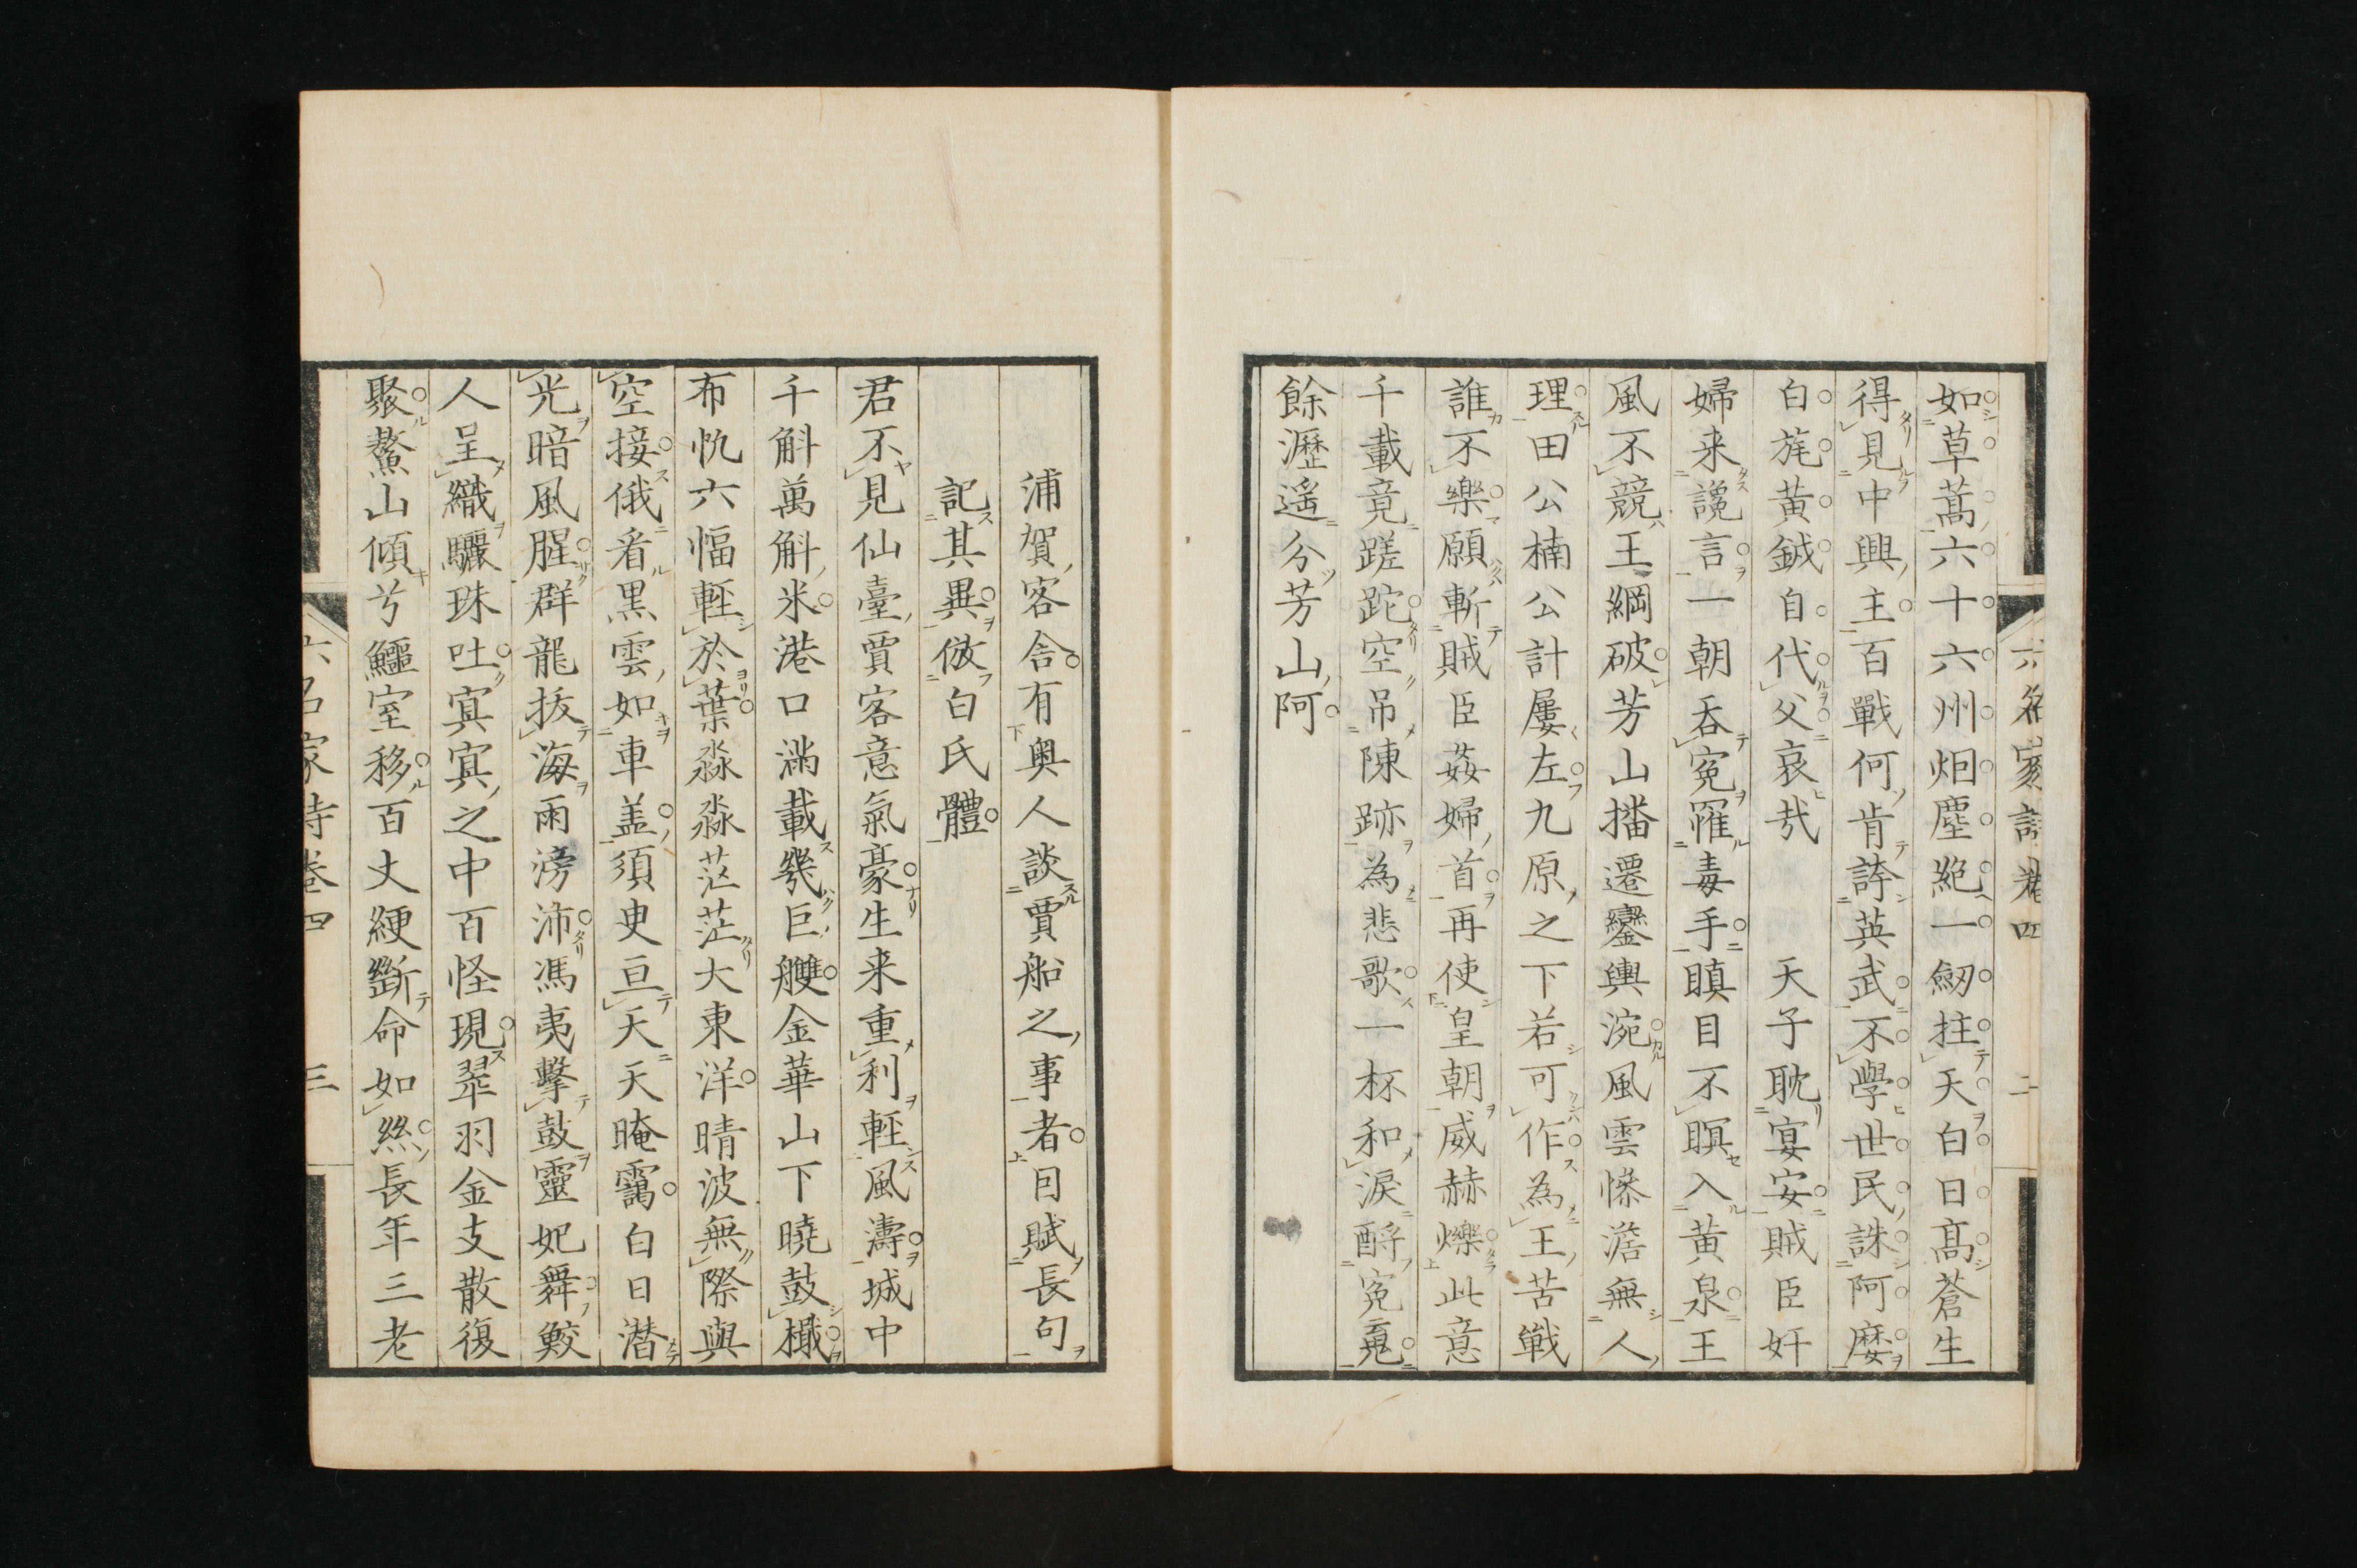 六名家詩卷四 二
如草蒿六十六州烟塵絶一劔拄天白日髙蒼生
得見中興主百戰何肯誇英武不學世民誅阿麼
白旄黄鉞自代父哀㢤 天子耽宴安賊臣奸
婦来讒言一朝呑寃罹毒手瞋目不瞑入黄泉王
風不競王綱破芳山播遷鑾輿涴風雲惨澹無人
理田公楠公計屢左九原之下若可作為王苦戦
誰不樂願斬賊臣姦婦首再使皇朝威赫爍此意
千載竟蹉跎空吊陳跡為悲歌一杯和淚酹寃䰟
餘瀝遙分芳山阿
浦賀客舎有奥人談賈船之事者因賦長句
記其異倣白氏體
君不見仙臺賈客意氣豪生来重利輕風濤城中
千斛萬斛米港口滿載幾巨艭金華山下曉鼓檝
布帆六幅輕於葉淼淼茫茫大東洋晴波無際與
空接俄看黒雲如車盖須臾亘天天晻靄白日潜
光暗風腥群龍抜海雨滂沛馮夷擊鼓靈妃舞鮫
人呈織驪珠吐寘寘之中百怪現翠羽金支散復
聚鰲山傾兮鱷室移百丈綆斷命如絲長年三老
六名家詩卷四 三